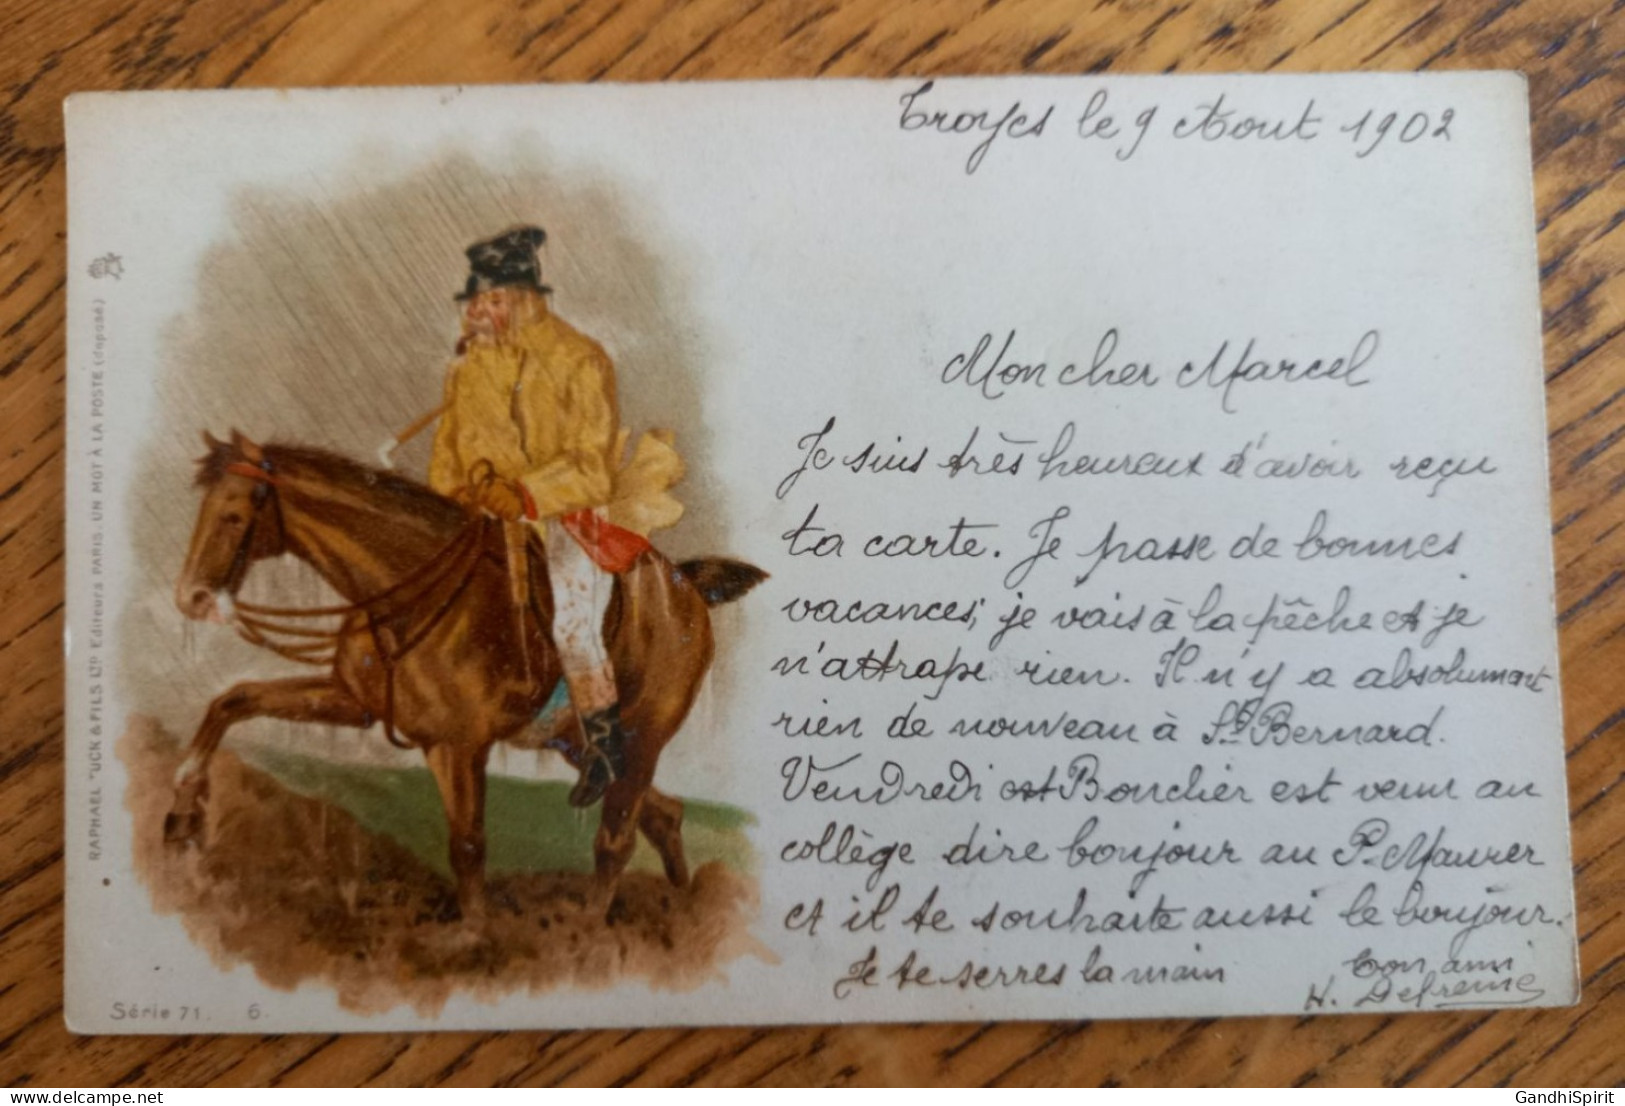 Troyes le 9 Aout 1902
Mon cher Marcel
Je suis très heureux d'avoir reçu
ta carte. Je passe de bonnes
vacances; je vais à la pêche et je
n'attrape rien. Il n'y a absolument
rien de nouveau à St Bernard.
Vendredi Bonclier est venu au
collège dire bonjour au P. Maurer
et il te souhaite aussi le bonjour.
Je te serres la main
Ton ami
H.
RAPHAEL TUCK & FILS LTD Editeurs PARIS. UN MOT À LA POSTE (déposé)
Série 71. 6.
GandhiSpirit